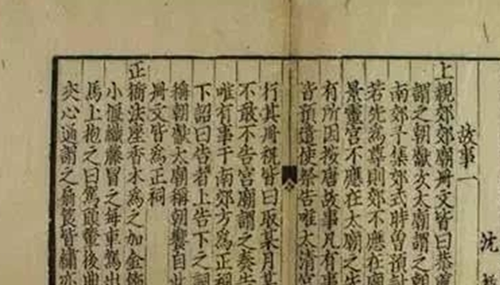 沈
故事一
上親郊郊廟冊文皆曰恭薦
謂之朝獻次太廟謂之朝
南郊予集郊式時曾預討
若先為尊則郊不應在廟
景靈宮不應在太廟之先
有所因按唐故事凡有事
皆預遣使祭告唯太清宮
行其冊祝皆曰取某月某
不敢不告宮廟謂之奏告
唯有事于南郊方為正祠
下詔曰告者上告下之詞
稱朝獻太廟稱朝饗自此
冊文皆為正祠
正衙法座香木為之加金飾
小偃織藤冒之每車駕出
馬上抱之曰駕頭輦後曲
夾心通謂之扇筤皆繡亦